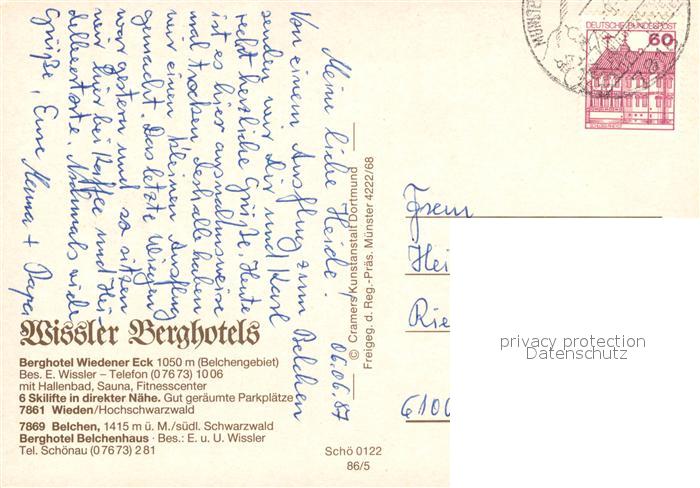 Meine liebe Heide! 06.06.87
Von einem Ausflug zum Belchen
senden wir Dir und Karl
recht herzliche Grüße. Heute
ist es hier ausnahmsweise
mal trocken, deshalb haben
wir einen kleinen Ausflug
gemacht. Das letzte Wiegen
war gestern und so sitzen
wir hier bei Kaffee und Hei-
delbeertorte. Nochmals viele
Grüße, Eure Mama + Papa
Wissler Berghotels
Berghotel Wiedener Eck 1050 m (Belchengebiet)
Bes. E. Wissler – Telefon (07673) 1006
mit Hallenbad, Sauna, Fitnesscenter
6 Skilifte in direkter Nähe. Gut geräumte Parkplätze
7861 Wieden/Hochschwarzwald
7869 Belchen, 1415 m ü. M./südl. Schwarzwald
Berghotel Belchenhaus · Bes.: E. u. U. Wissler
Tel. Schönau (07673) 281
© Cramers Kunstanstalt Dortmund
Freigeg. d. Reg.-Präs. Münster 4222/68
Schö 0122
86/5
DEUTSCHE BUNDESPOST
60
MÜNSTERTAL
Frau
Hei
Rie
6100
privacy protection
Datenschutz